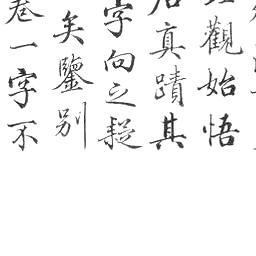 觀始悟
真蹟其
字向之疑
矣鑒别
一字不